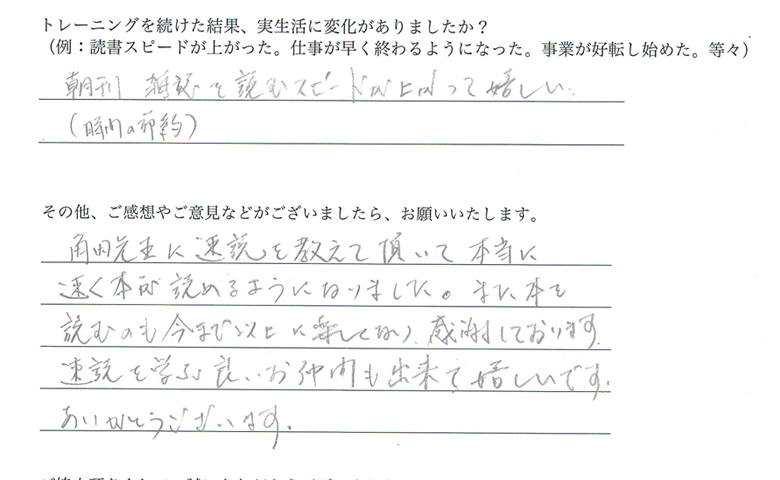 トレーニングを続けた結果、実生活に変化がありましたか？
（例：読書スピードが上がった。仕事が早く終わるようになった。事業が好転し始めた。等々）
朝刊 雑誌を読むスピードが上がって嬉しい.
(時間の節約)
その他、ご感想やご意見などがございましたら、お願いいたします。
角田先生に速読を教えて頂いて本当に
速く本が読めるようになりました。また本を
読むのも今まで以上に楽しくなり、感謝しております.
速読を学ぶ良いお仲間も出来て嬉しいです.
ありがとうございます.